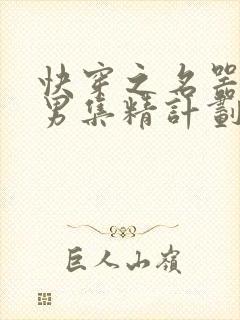 快穿之名器
男集精計劃
巨人山嶺